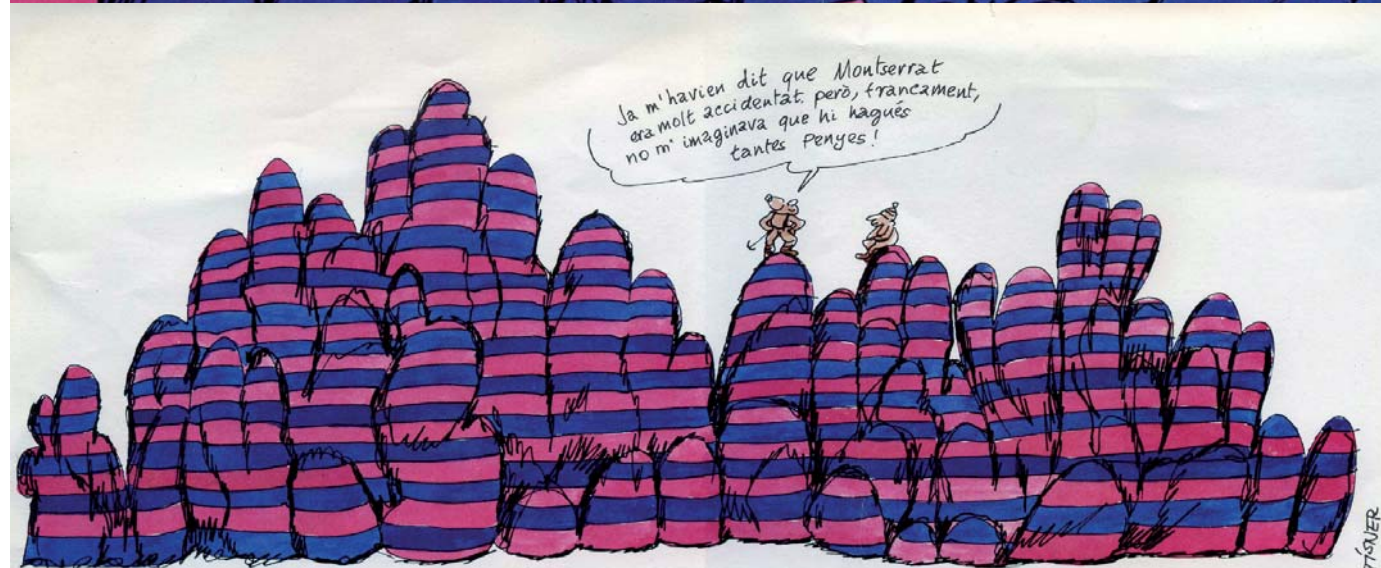 Ja m'havien dit que Montserrat
era molt accidentat. però, francament,
no m'imaginava que hi hagués
tantes Penyes!
TÍSNER